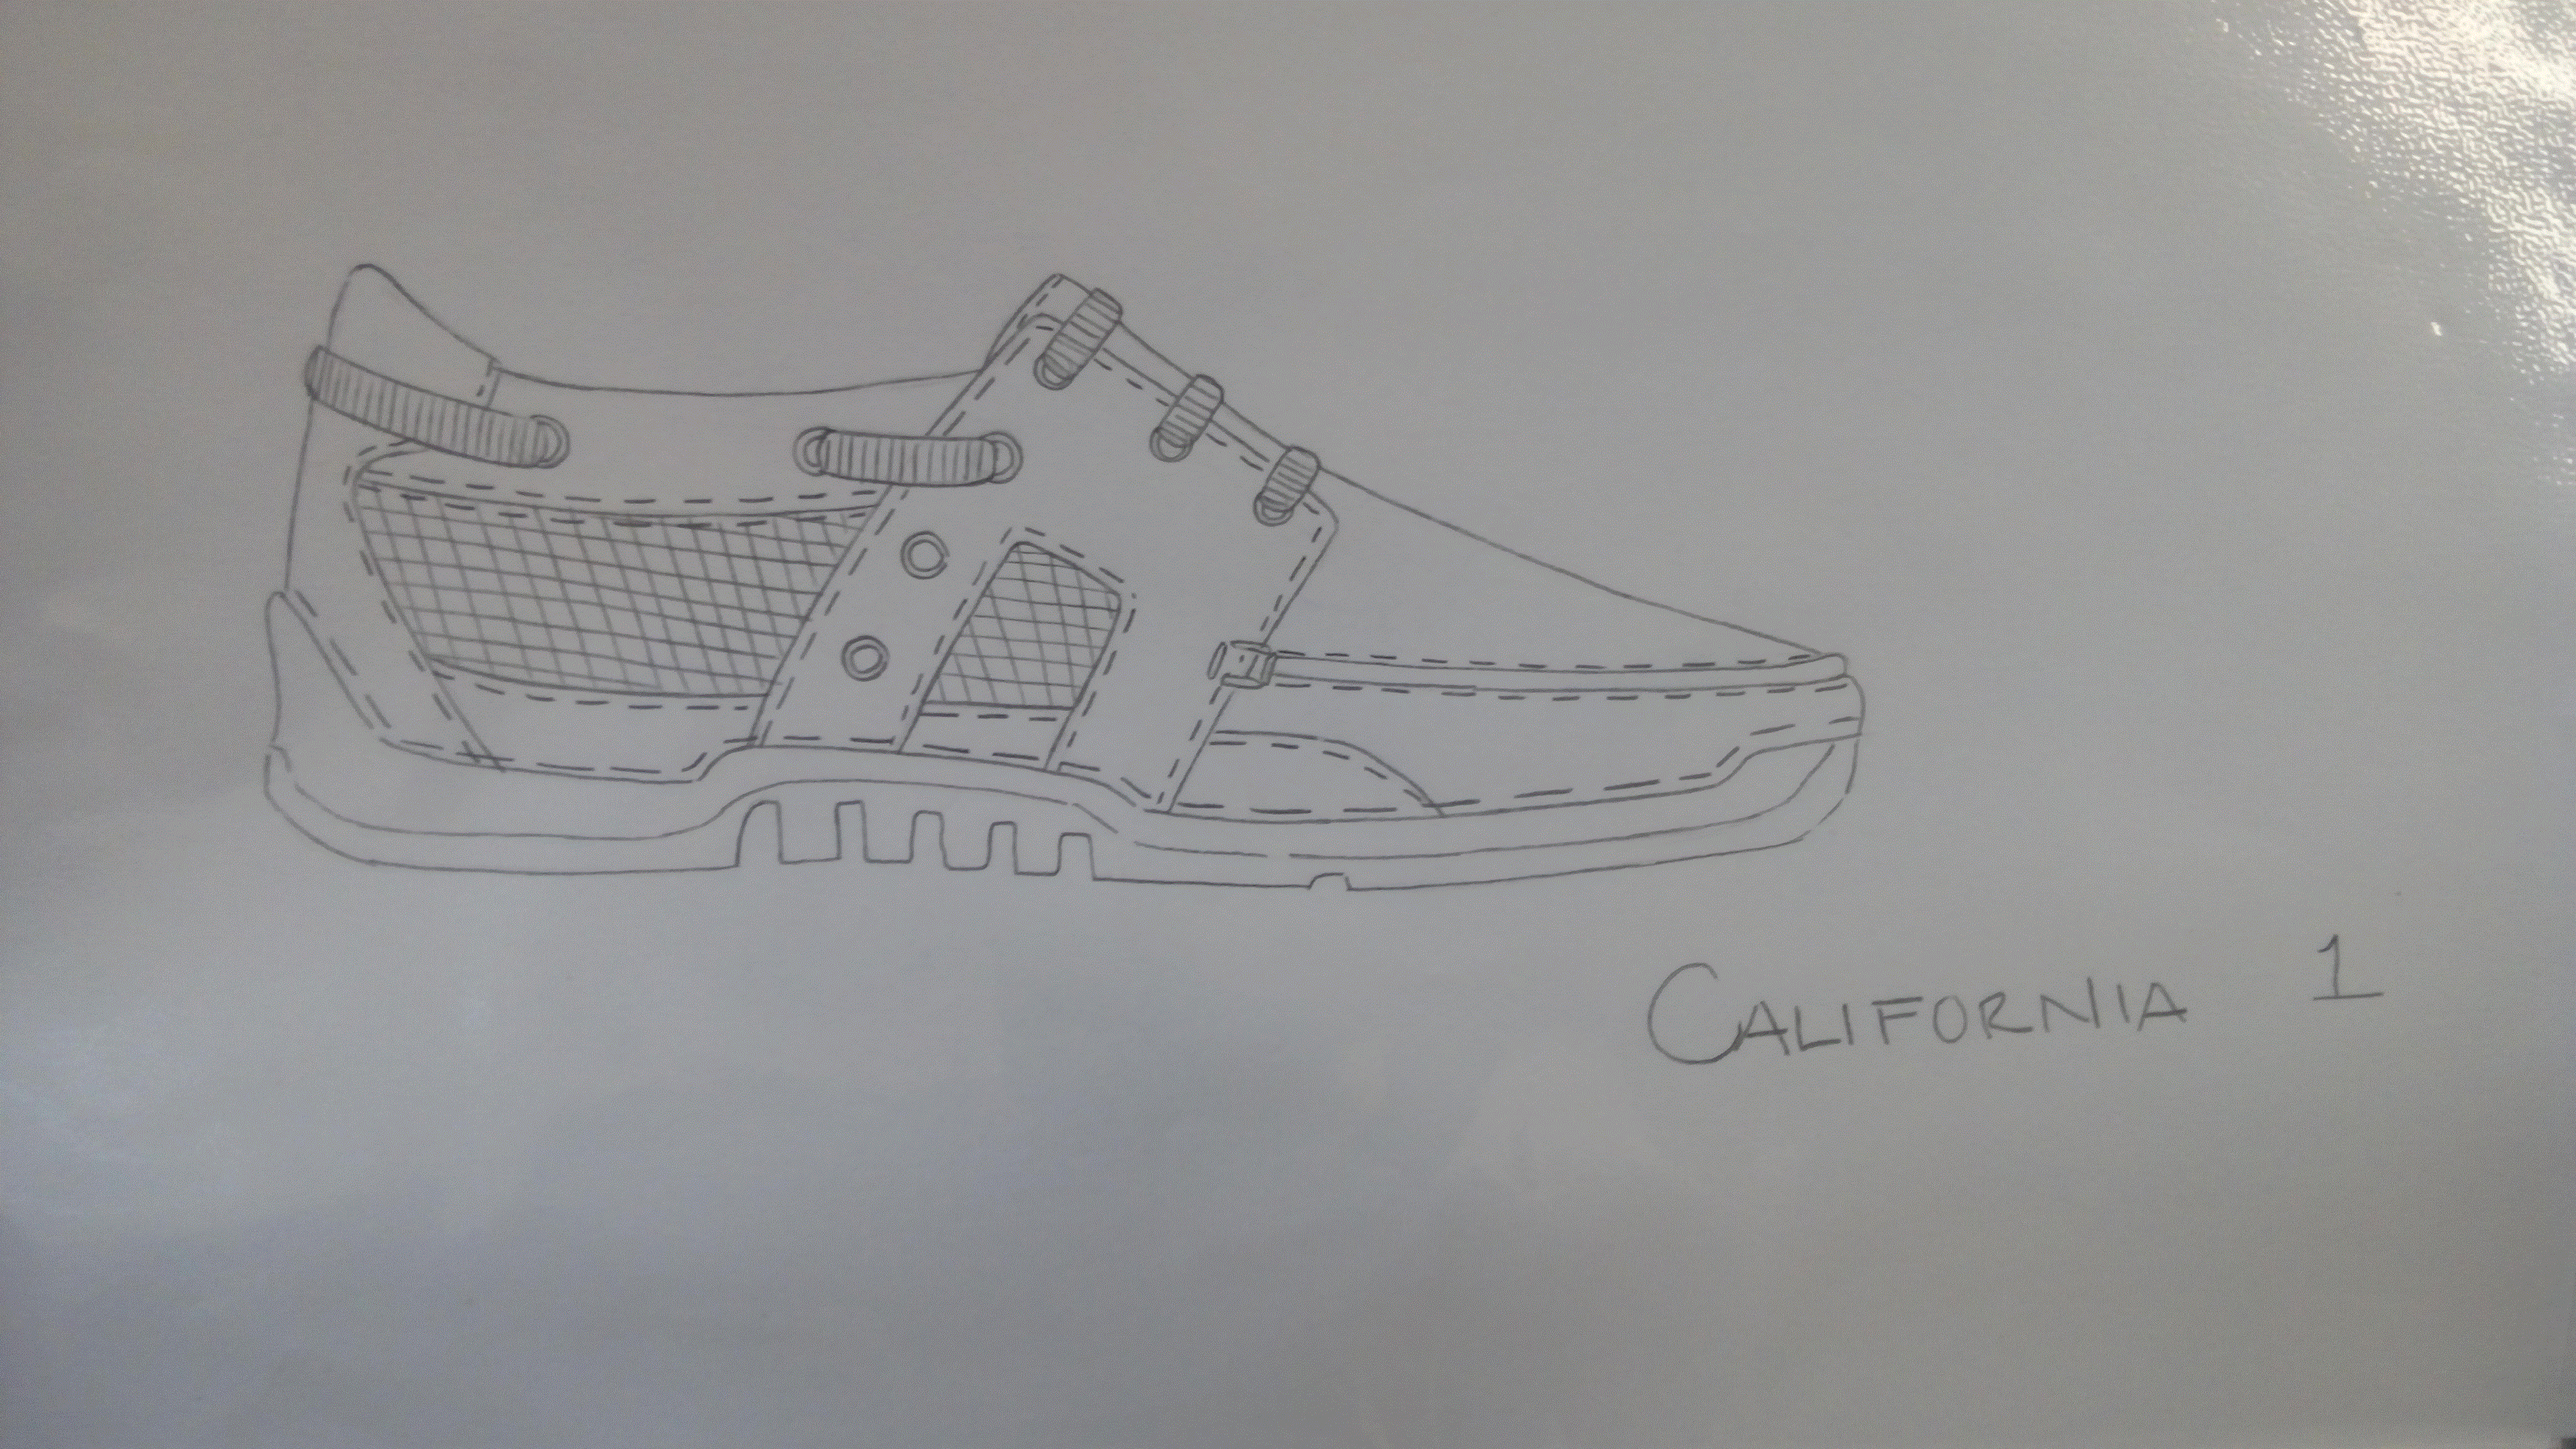 CALIFORNIA 1